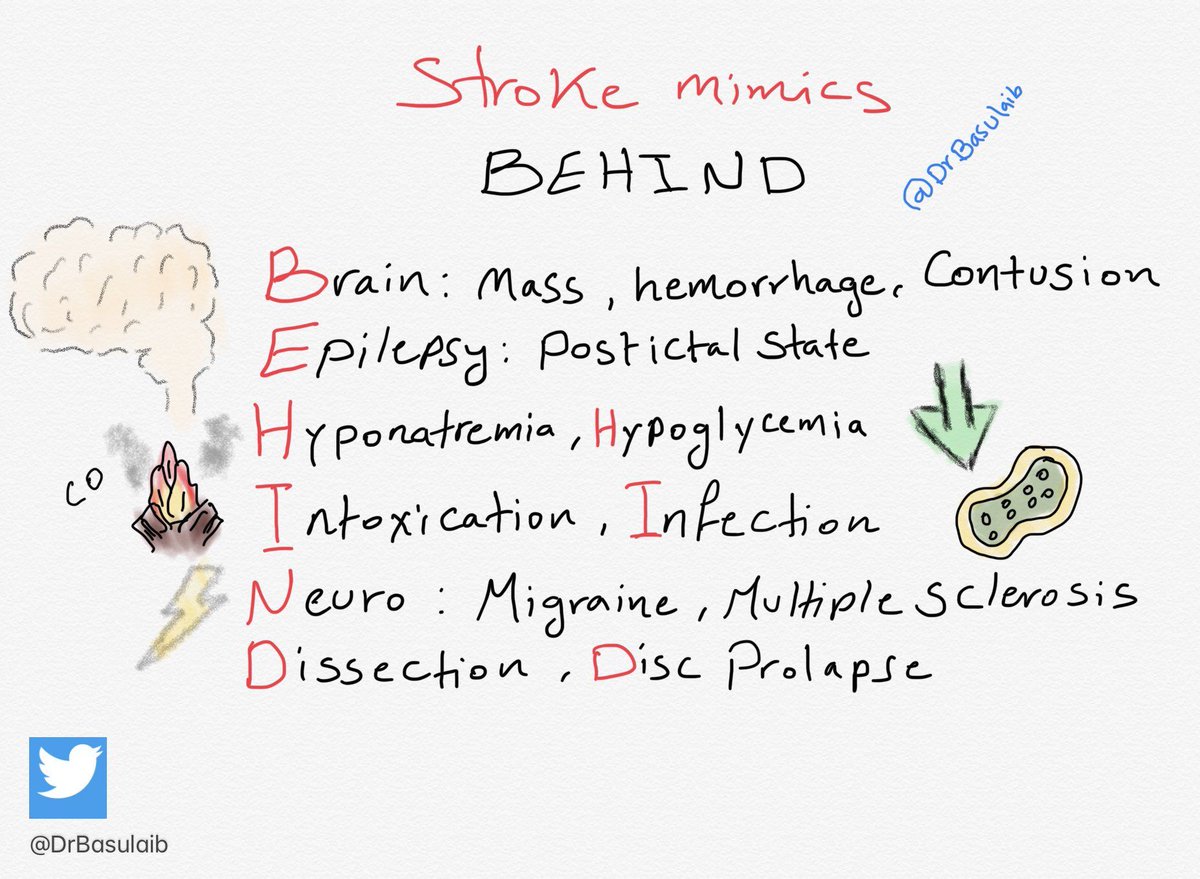 Stroke mimics
BEHIND
@DrBasulaib
Brain: Mass, hemorrhage, Contusion
Epilepsy: Postictal State
Hyponatremia, Hypoglycemia
CO
Intoxication, Infection
Neuro: Migraine, Multiple Sclerosis
Dissection, Disc Prolapse
@DrBasulaib